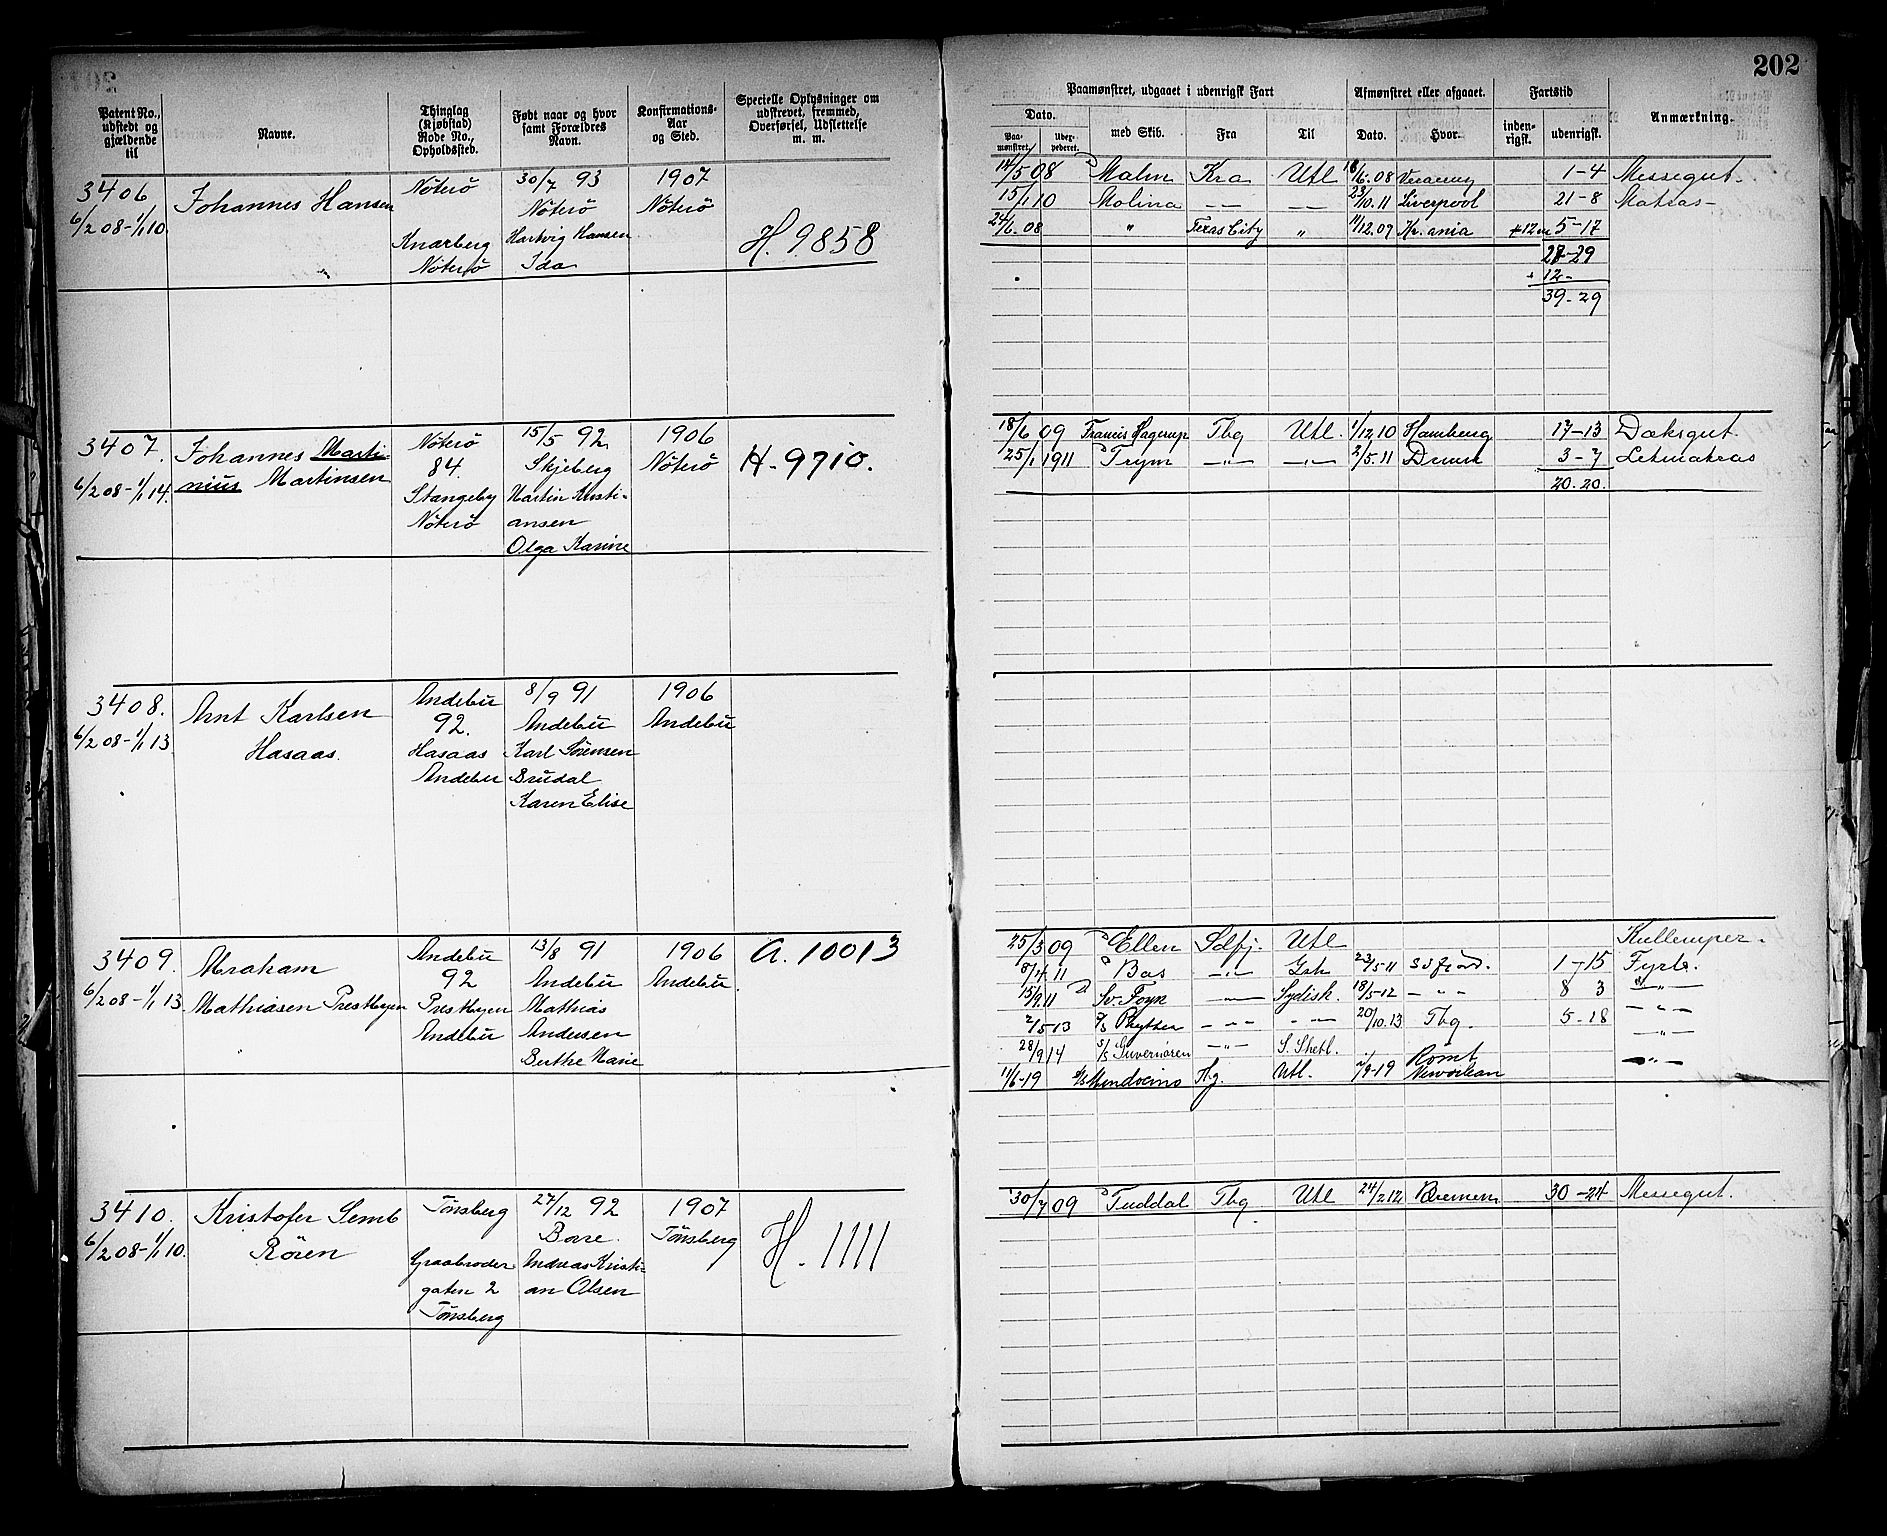 202
Patent No., udstedt og gjældende til
Navne.
Thinglag (Kjøbstad) Rode No., Opholdssted.
Født naar og hvor samt Forældres Navn.
Konfirmations-Aar og Sted.
Specielle Oplysninger om udstrevet, fremmed, Overførsel, Udslettelse m. m.
Paamønstret, udgaaet i udenrigsk Fart
Afmønstret eller afgaaet.
Fartstid
Anmærkning.
Dato.
Paa-mønstret.
med Skib.
Fra
Til
Dato.
Hvor.
inden-rigsk.
udenrigsk.
3406
6/2 08-1/1 10.
Johannes Hansen
Nøterø
Knarberg
Nøterø
30/7 93
Nøterø
Hartvig Hansen
Ida
1907
Nøterø
H. 9858
14/5 08 Malm Kra Utl 18/6.08 1-4 Messegut.
15/1 10 Molina 23/10.11 Liverpool 21-8 Matros
24/6.08 " Texas City " 11/12.09 Kr.ania +12 5-17
29
12-
39-29
3407.
6/2 08-1/1 14.
Johannes Marti-
nius Martinsen
Nøterø
84.
Stangeby
Nøterø
15/5 92
Skjeberg
Martin Kristi-
ansen
Olga Karine
1906
Nøterø
H-9710.
18/6 09 Francis Hagerup Tbg Utl. 1/12 10 Hamburg 17-13 Dæksgut.
25/1 1911 D Trym —"— —"— 2/5.11 3-7 Letmatros
20.20.
3408.
6/2 08-1/1 13
Arnt Karlsen
Hasaas.
Andebu
92.
Hasaas
Andebu
8/9 91
Andebu
Karl Sørensen
Brudal
Karen Elise
1906
Andebu
3409.
6/2 08-1/1 13.
Abraham
Mathiasen Presthyen
Andebu
92
Presthyen
Andebu
13/8 91
Andebu
Mathias
Andersen
Berthe Marie
1906
Andebu.
A. 10013
25/3 09 D Ellen Sdfj. Utl Kullemper.
8/4 11 D Bas —"— 23/5-11 1-15 Fyrb.
15/9 11 D Sv. Foyn —"— Sydish. 18/5-12 —"— 8 3 —"—
2/5-13 —"— —"— 20/10.13 Tbg. 5-18 —"—
28/9 14 S/S Guvernøren —"— S. Shetl. —"—
11/6-19 Mendocino Utl. Rømt —"—
3410.
6/2 08-1/1 10.
Kristofer Semb
Røren
Tønsberg
Graabrødre
gaten 2
Tønsberg
27/12 92
Borre.
Andreas Kristi-
an Olsen
1907
Tønsberg
H. 1111
30/7 09 D Tuddal Tbg Utl 24/2 12 Bremen 30-24 Messegut.